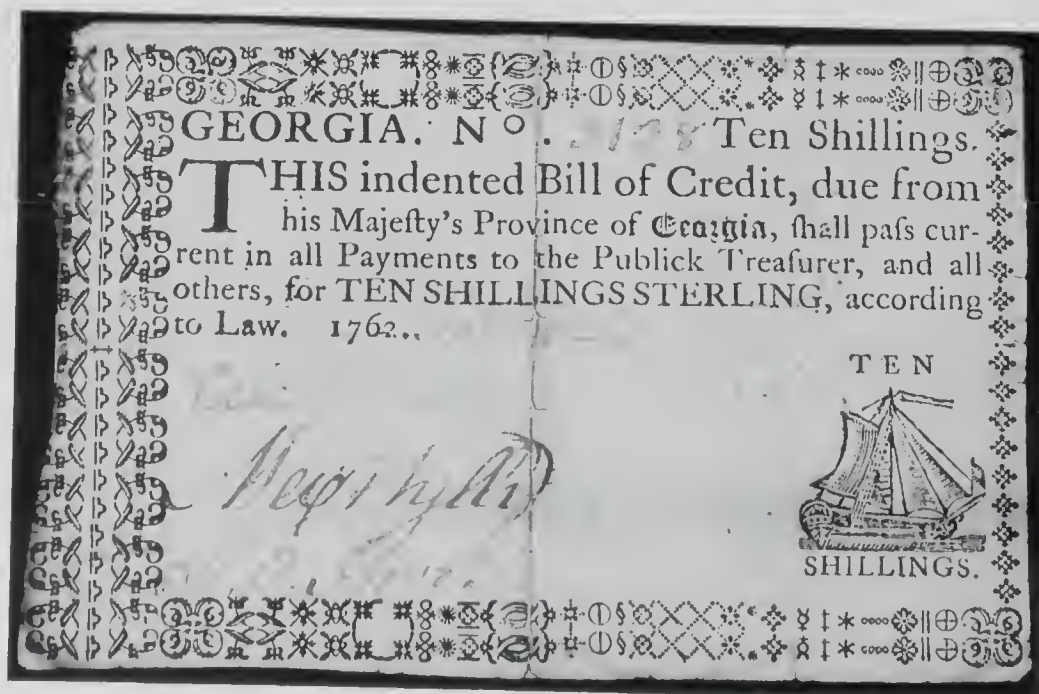 GEORGIA. No. Ten Shillings.
THIS indented Bill of Credit, due from
his Majeſty's Province of Georgia, ſhall paſs cur-
rent in all Payments to the Publick Treaſurer, and all
others, for TEN SHILLINGS STERLING, according
to Law. 1762..
TEN
SHILLINGS.